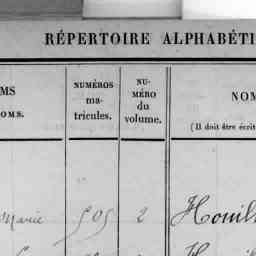 RÉPERTOIRE ALPHABÉTI
MS
OMS.
NUMÉROS
ma-
tricules.
NU-
MÉRO
du
volume.
NOM
(Il doit être écrit
Marie 505 2 Houil